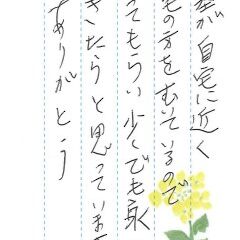 が 自宅に近く
の方をむいているので
てもらい少しでも永
きたらと思っていま
ありがとう